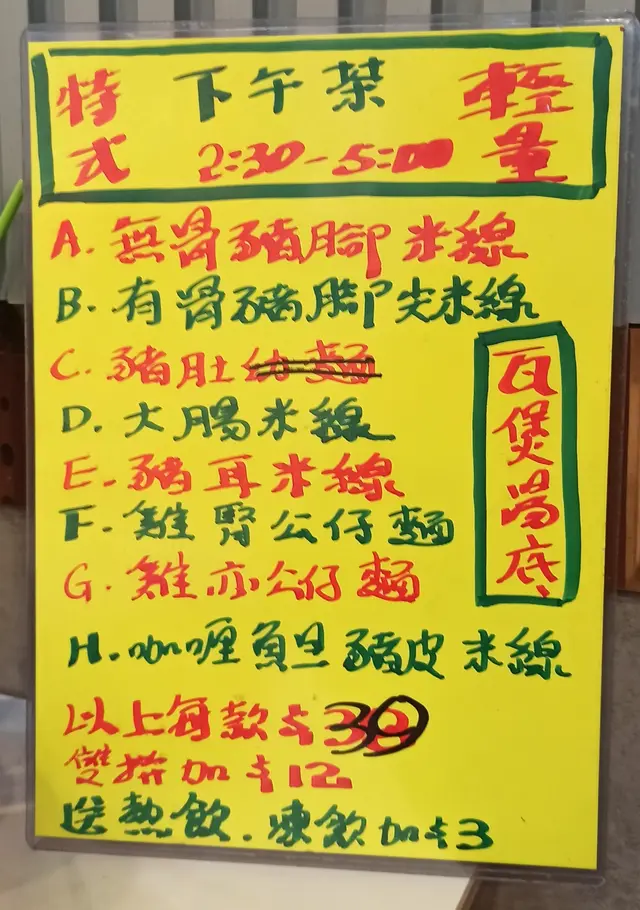 特式
下午茶
2:30-5:00
輕量
A. 無骨豬腳米線
B. 有骨豬腳尖米線
C. 豬肚幼麵
D. 大腸米線
E. 豬耳米線
F. 雞腎公仔麵
G. 雞亦公仔麵
H. 咖喱魚旦豬皮米線
瓦煲湯底
以上每款$39
雙拼加$12
送熱飲.凍飲加$3